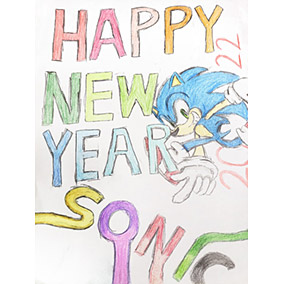 HAPPY
NEW
YEAR
2022
SONIC